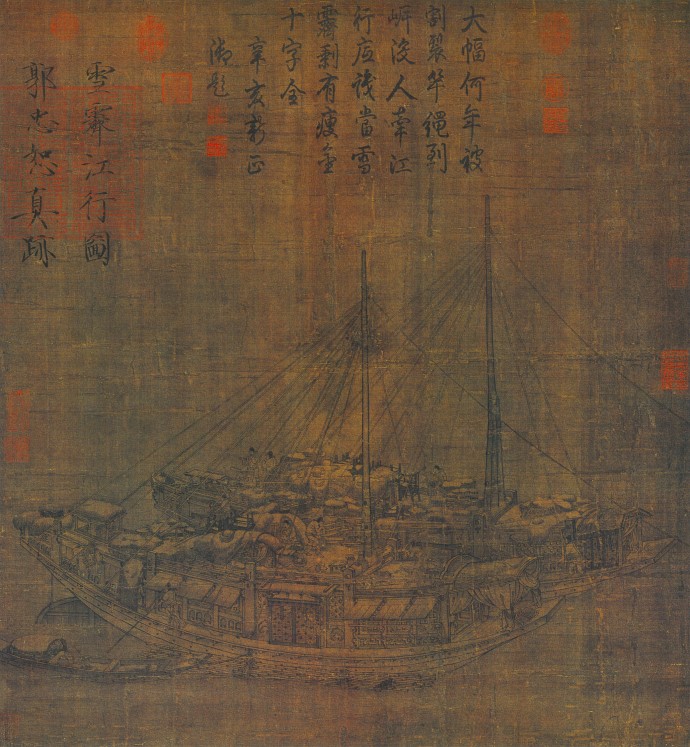 大幅何年被
割裂竿繩到
岸没人牽江
行當雪
霽剩有瘦金
十字全
辛亥新正
御題
雪霽江行圖
郭忠恕真跡